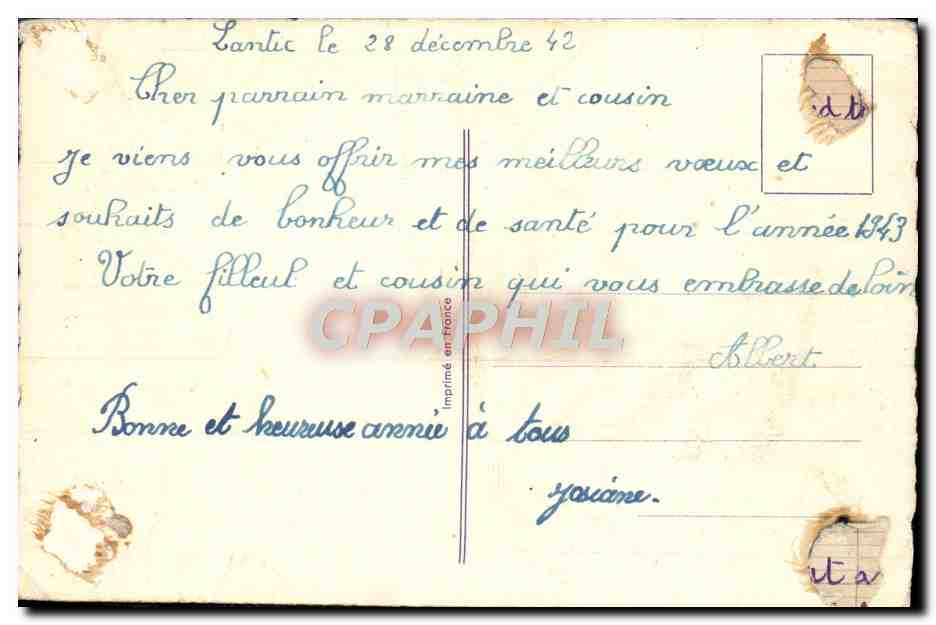 Lantic le 28 décembre 42
Cher parrain marraine et cousin
Je viens vous offrir mes meilleurs vœux et
souhaits de bonheur et de santé pour l'année 1943
Votre filleul et cousin qui vous embrasse de loin
Albert
Bonne et heureuse année à tous
Josiane.
Imprimé en France
CPAPHIL